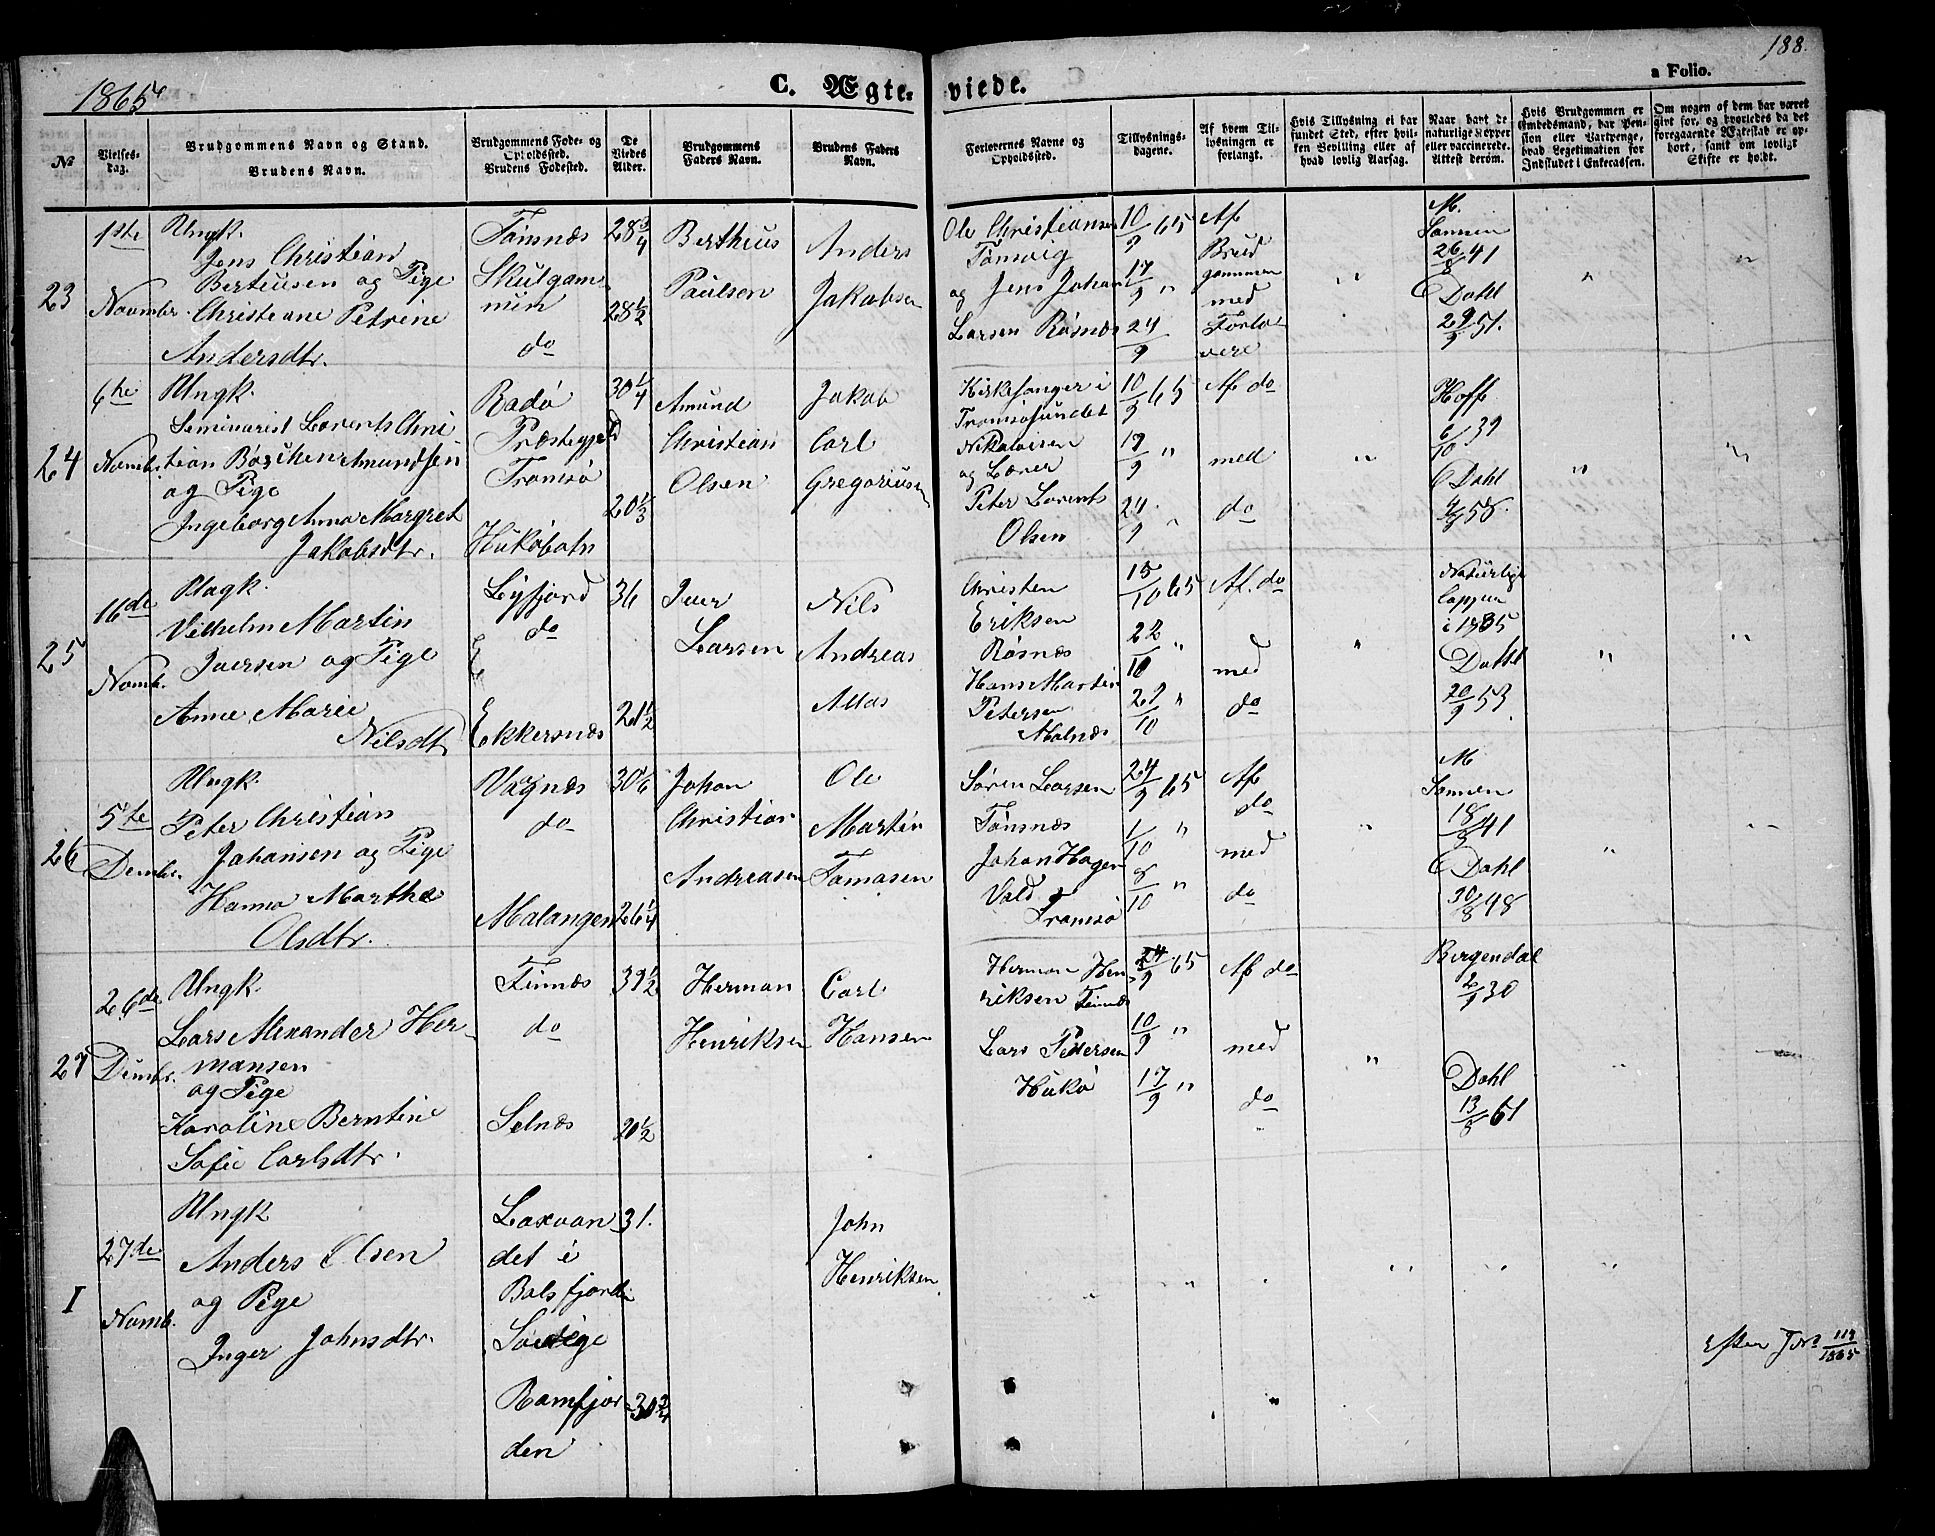 1865
C. Ægteviede.
188.
a Folio.
№
Vielsesdag.
Brudgommens Navn og Stand.
Brudens Navn.
Brudgommens Føde- og Opholdssted.
Brudens Fødested.
De Viedes Alder.
Brudgommens Faders Navn.
Brudens Faders Navn.
Forlovernes Navne og Opholdssted.
Tillysningsdagene.
Af hvem Tillysningen er forlangt.
Hvis Tillysning ei har fundet Sted, efter hvilken Bevilling eller af hvad lovlig Aarsag.
Naar havt de naturlige Kopper eller vaccinerede. Attest derom.
Hvis Brudgommen er Embedsmand, har Pension eller Vartpenge, hvad Legetimation for Indskudet i Enkecassen.
Om nogen af dem har været gift før, og hvorledes da det foregaaende Ægteskab er ophørt, samt om lovligt Skifte er holdt.
23
1ste
Novmbr.
Ungk.
Jens Christian
Berteusen og Pige
Christiane Petrine
Andersdtr.
Tønsnæs
Skulgam
num
do
28 3/4
28 1/2
Bertheus
Paulsen
Anders
Jakobsen
Ole Christiansen
Tønsvig
og Jens Johan
Larsen Røsnæs
10/9 65
17/9 "
24/9
Af
Brud
gommen
med
Forlo
vere
"
M.
26/8 41
Dahl
29/9 51.
"
"
24
6te
Novmbr.
Ungk.
Seminarist Lorents Chri
tian Amundsen
og Pige
Ingeborg Anna Margret
Jakobsdtr.
Radø
Præstegjeld
Tromsø
Hukøbotn
30 1/4
20 1/3
Amund
Christian
Olsen
Jakob
Carl
Gregoriusen
Kirkesanger i
Tromsøsundet
Nikolaisen
og Lærer
Peter Lorents
Olsen
10/9 65
17/9 "
24/9 "
Af do
med
do
"
Hoff
6/10 39
Dahl
58.
"
"
25
16de
Novmb.
Ungk.
Vilhelm Martin
Iversen og Pige
Anne Marie
Nilsdt.
Lyfjord
do
Ekkersnæs
36
21 1/2
Iver
Larsen
Nils
Andreas
Christen
Eriksen
Røsnæs
Hans Martin
Petersen
15/10 65
22/10 "
29/10 "
Af. do
med
do
"
Naturlige
i 1835
Dahl
20/9 53.
"
"
26
5te
Dembr.
Ungk.
Peter Christian
Johansen og Pige
Hanna Marthe
Olsdtr.
Vagnæs
do
Malangen
30 1/6
26 1/4
Johan
Christian
Andreasen
Ole
Martin
Tomasen
Søren Larsen
Tønsnæs
Johan Hagen
Vold
Tromsø
24/9 65
1/10 "
8/10 "
Af
do
med
do
"
M
18/8 41
Dahl
30/8 48
"
"
27
26de
Dembr.
Ungk.
Lars Alexander Her
mansen
og Pige
Karoline Berntine
Sofie Carlsdtr.
Finnæs
do
Selnæs
39 1/2
20 1/2
Herman
Henriksen
Carl
Hansen
Herman Hen
riksen Finnæs
Lars Pedersen
Hukø
24/9 65
10/9 "
17/9 "
Af do
med
do
"
Bergendal
2/9 30
Dahl
13/8 61
I
27de
Novmb.
Ungk
Anders Olsen
og Pige
Inger Johnsdtr.
Laxvan
det i
Balsfjord
Ramfjor
den
31.
30 3/4
John
Henriksen
"
"
Efter Jor. 119/1865